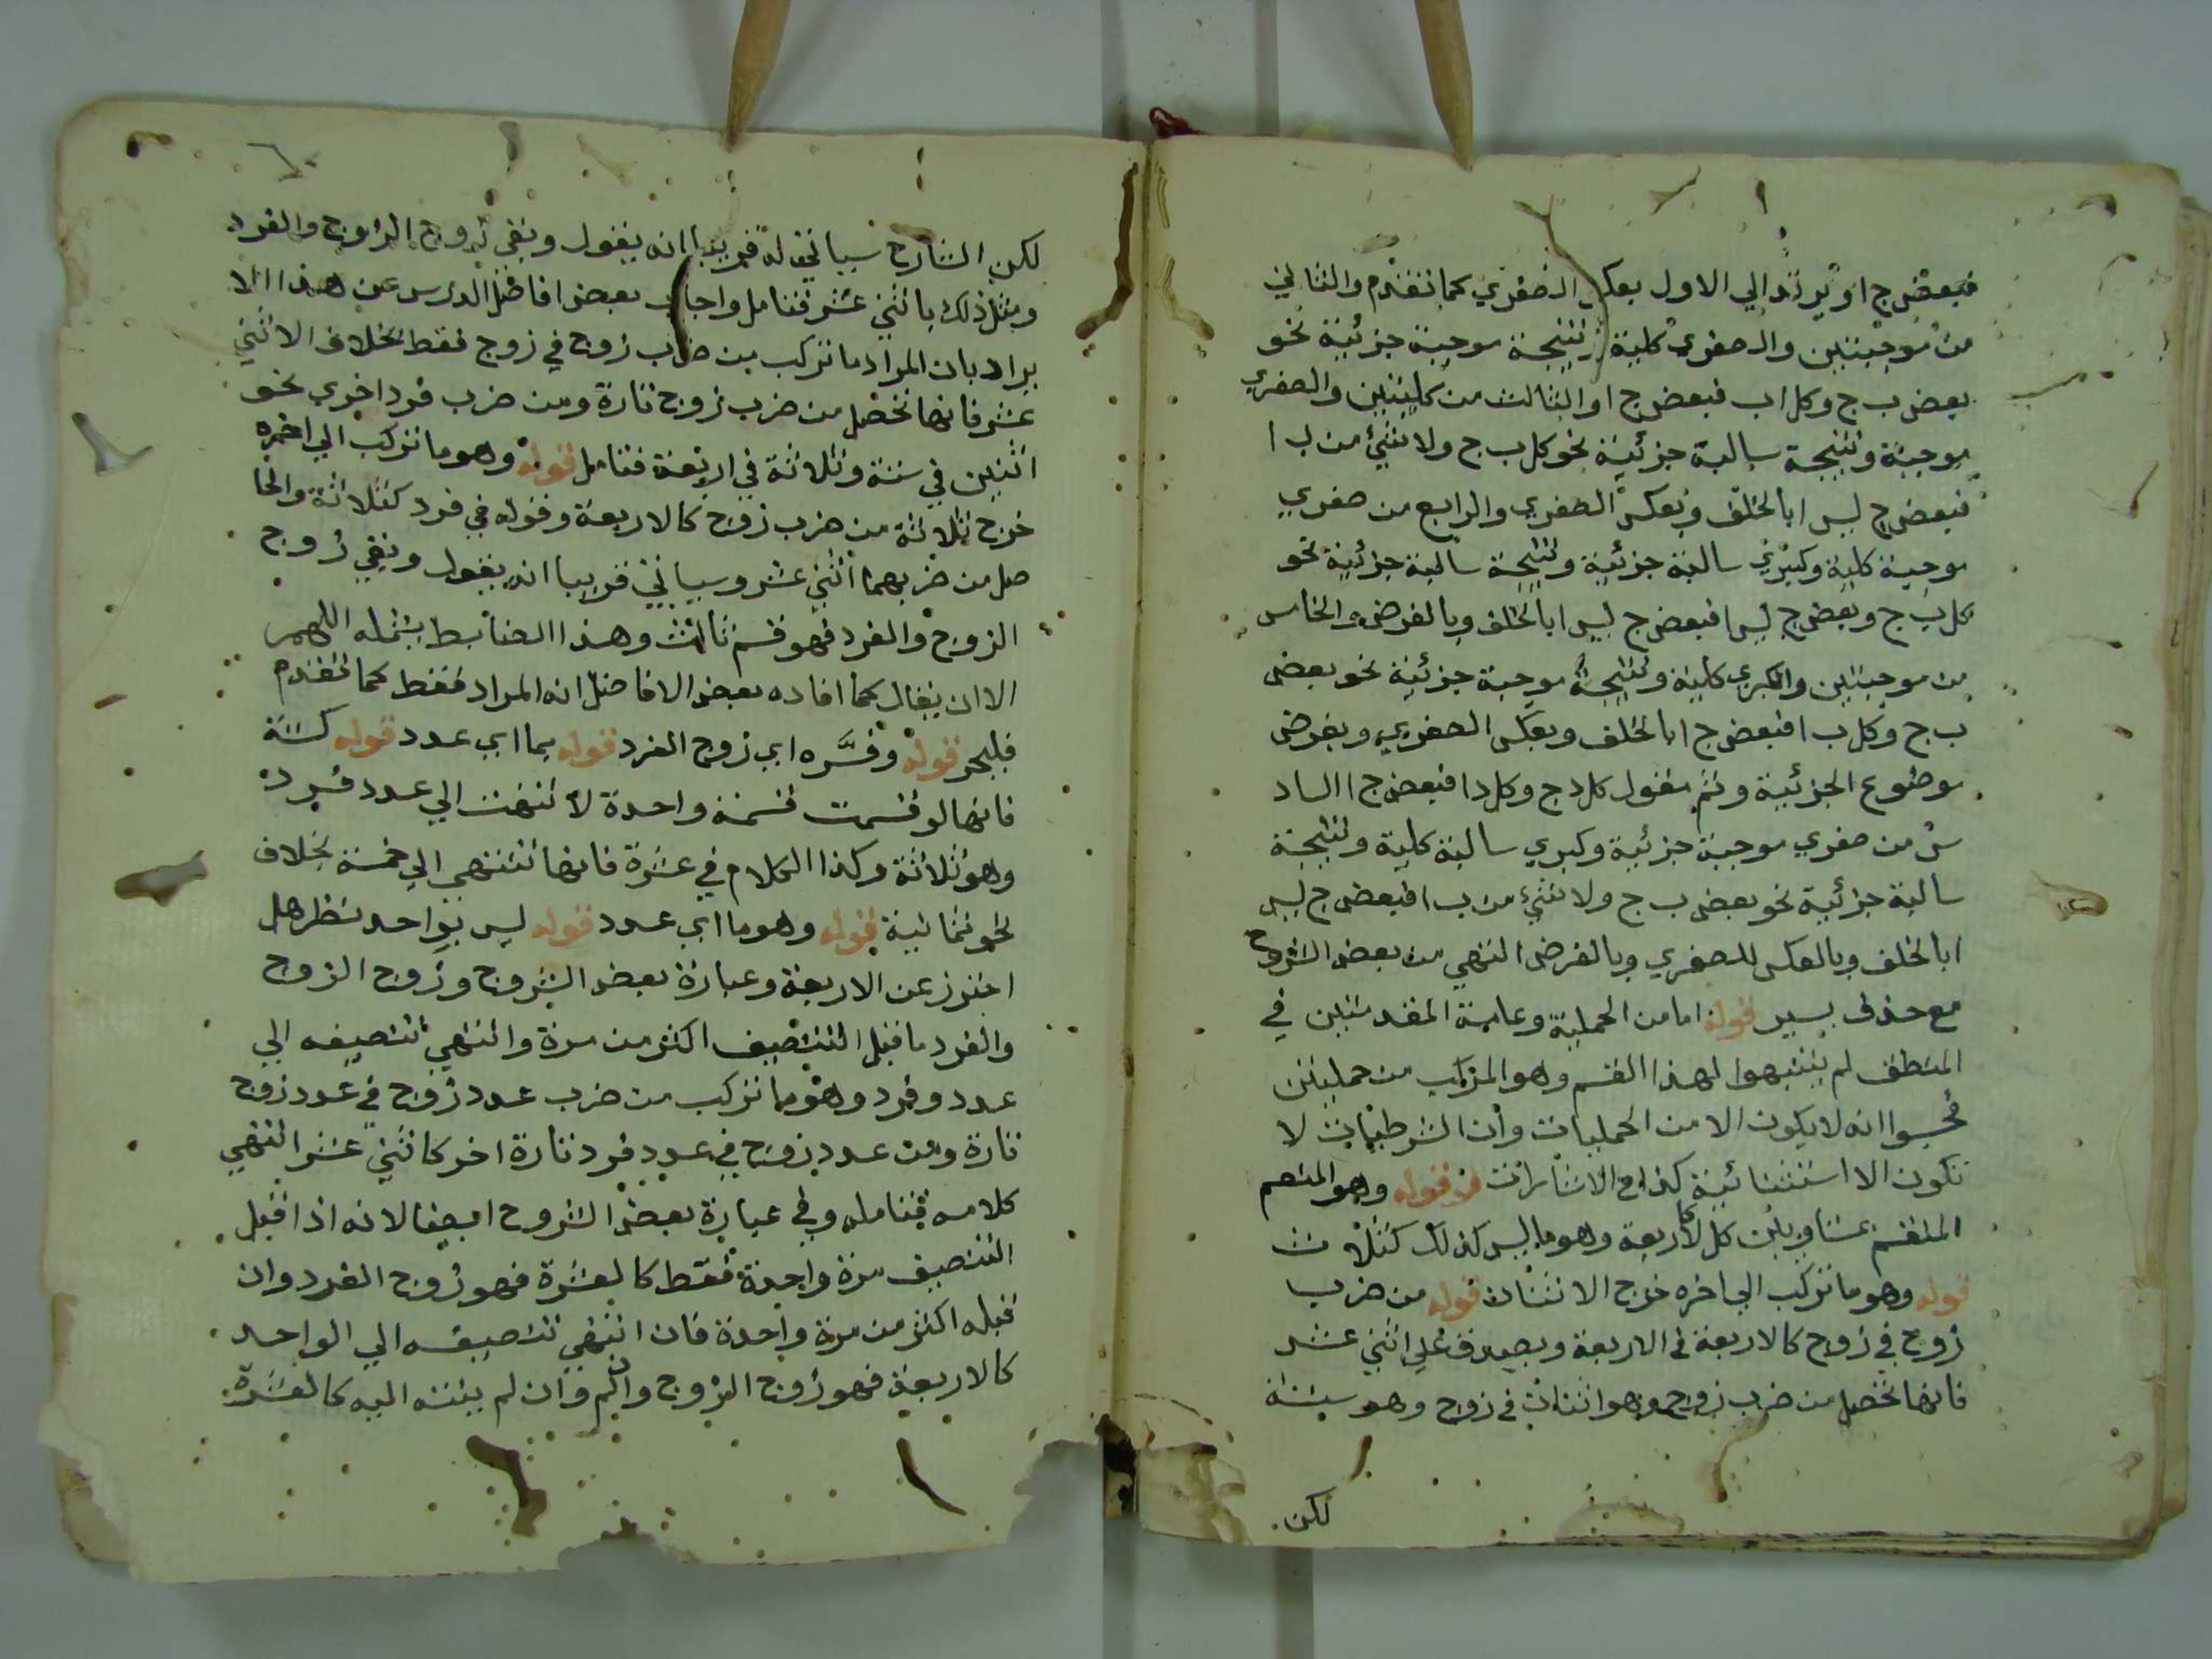 فبعض ج ا ويرتد الي الاول بعكس الصغري كما تقدم والثاني
من موجبتين والصغري كلية ينتجة موجبة جزئية نحو
بعض ب ج وكل ا ب فبعض ج ا والثالث من كليتين والصغري
موجبة وينتجة سالبة جزئية نحو كل ب ج ولا شئ من ب ا
فبعض ج ليس ا بالخلف وبعكس الصغري والرابع من صغري
موجبة كلية وكبري سالبة جزئية ونتيجة سالبة جزئية نحو
كل ب ج وبعض ج ليس ا فبعض ج ليس ا بالخلف وبالفرض والخامس
من موجبتين والكبري كلية ونتيجة موجبة جزئية نحو بعض
ب ج وكل ب ا فبعض ج ا بالخلف وبعكس الصغري وبفرض
موضوع الجزئية وثم نقول كل د ج وكل د ا فبعض ج ا الساد
س من صغري موجبة جزئية وكبري سالبة كلية ونتيجة
سالبة جزئية نحو بعض ب ج ولا شئ من ب ا فبعض ج ليس
ا بالخلف وبالعكس للصغري وبالفرض انتهي من بعض الشروح
مع حذف يسير قوله اما من الحملية وعامة المقدمتين في
المنطق لم يتنبهوا لهذا القسم وهو المركب من حمليتين
فحسبوا انه لا يكون الا من الحمليات وأن الشرطيات لا
تكون الا استثنائية كذا في الاشارات قوله وهو المنقسم
المنقسم بمتساويين كل كالاربعة وهو ما ليس كذلك كثلاث
قوله وهو ما تركب الي اخره خرج الاثنان قوله من ضرب
زوج في زوج كالاربعة في الاربعة ويصدق علي اثني عشر
فانها تحصل من ضرب زوج وهو اثنان في زوج وهو ستة
لكن
لكن الشارح سياتي له قريبا انه يقول وبقي زوج الزوج والفرد
ومثل ذلك باثني عشر فتامل واجاب بعض افاضل الدرس عن هذا الا
يراد بان المراد ما تركب من ضرب زوج في زوج فقط بخلاف الاثني
عشر فانها تحصل من ضرب زوج تارة ومن ضرب فرد اخري نحو
اثنين في ستة وثلاثة في اربعة فتامل قوله وهو ما تركب الي اخره
خرج ثلاثة من ضرب زوج كالاربعة وقوله في فرد كثلاثة والحا
صل من ضربهما اثني عشر وسياتي قريبا انه يقول وبقي زوج
الزوج والفرد فهو قسم ثالث وهذا الضابط يشمله اللهم
الا ان يقال كما افاده بعض الافاضل انه المراد فقط كما تقدم
فليحر قوله وفسره اي زوج الفرد قوله بما اي عدد قوله كستة
فانها لو قسمت قسمة واحدة لانتهت الي عدد فرد
وهو ثلاثة وكذا الكلام في عشرة فانها تنتهي الي خمسة بخلاف
نحو ثمانية قوله وهو ما اي عدد قوله ليس بواحد ينظر هل
احترز عن الاربعة وعبارة بعض الشروح وزوج الزوج
والفرد ما قبل التنصيف اكثر من مرة وانتهي تنصيفه الي
عدد وفرد وهو ما تركب من ضرب عدد زوج في عدد زوج
تارة ومن عدد زوج في عدد فرد تارة اخر كاثني عشر انتهي
كلامه فتامله وفي عبارة بعض الشروح ايضا لانه اذا قبل
التنصيف مرة واحدة فقط كالعشرة فهو زوج الفرد وان
قبله اكثر من مرة واحدة فان انتهي تنصيفه الي الواحد
كالاربعة فهو زوج الزوج وان لم ينته اليه كالعشرة